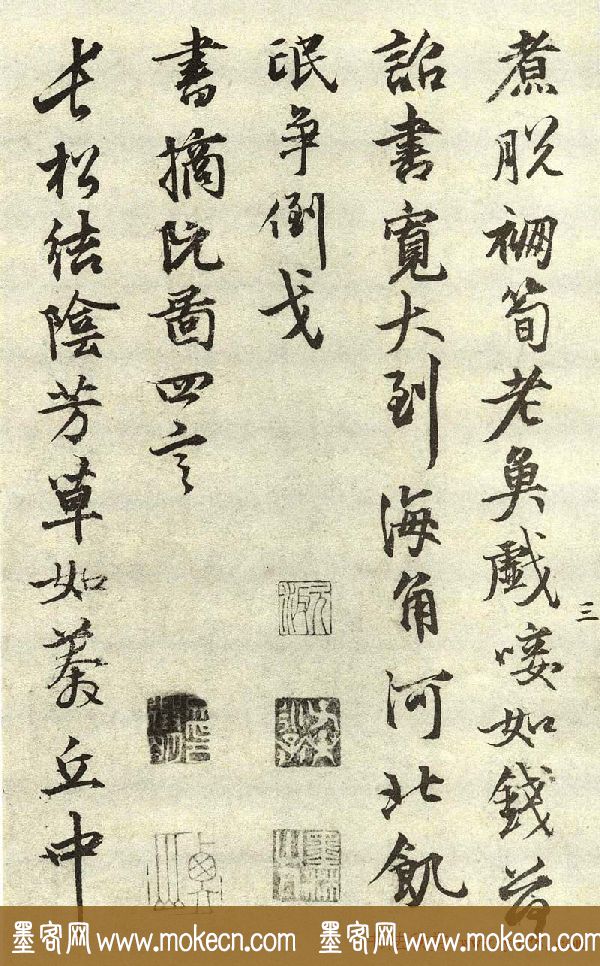 煮脱筍老魚戲唼如錢
詔書寬大到海角河北飢
氓争倒戈
書摘阮啚四言
長松结陰芳草如丘中
三
墨客网 www.mokecn.com 墨客网 www.mokecn.com